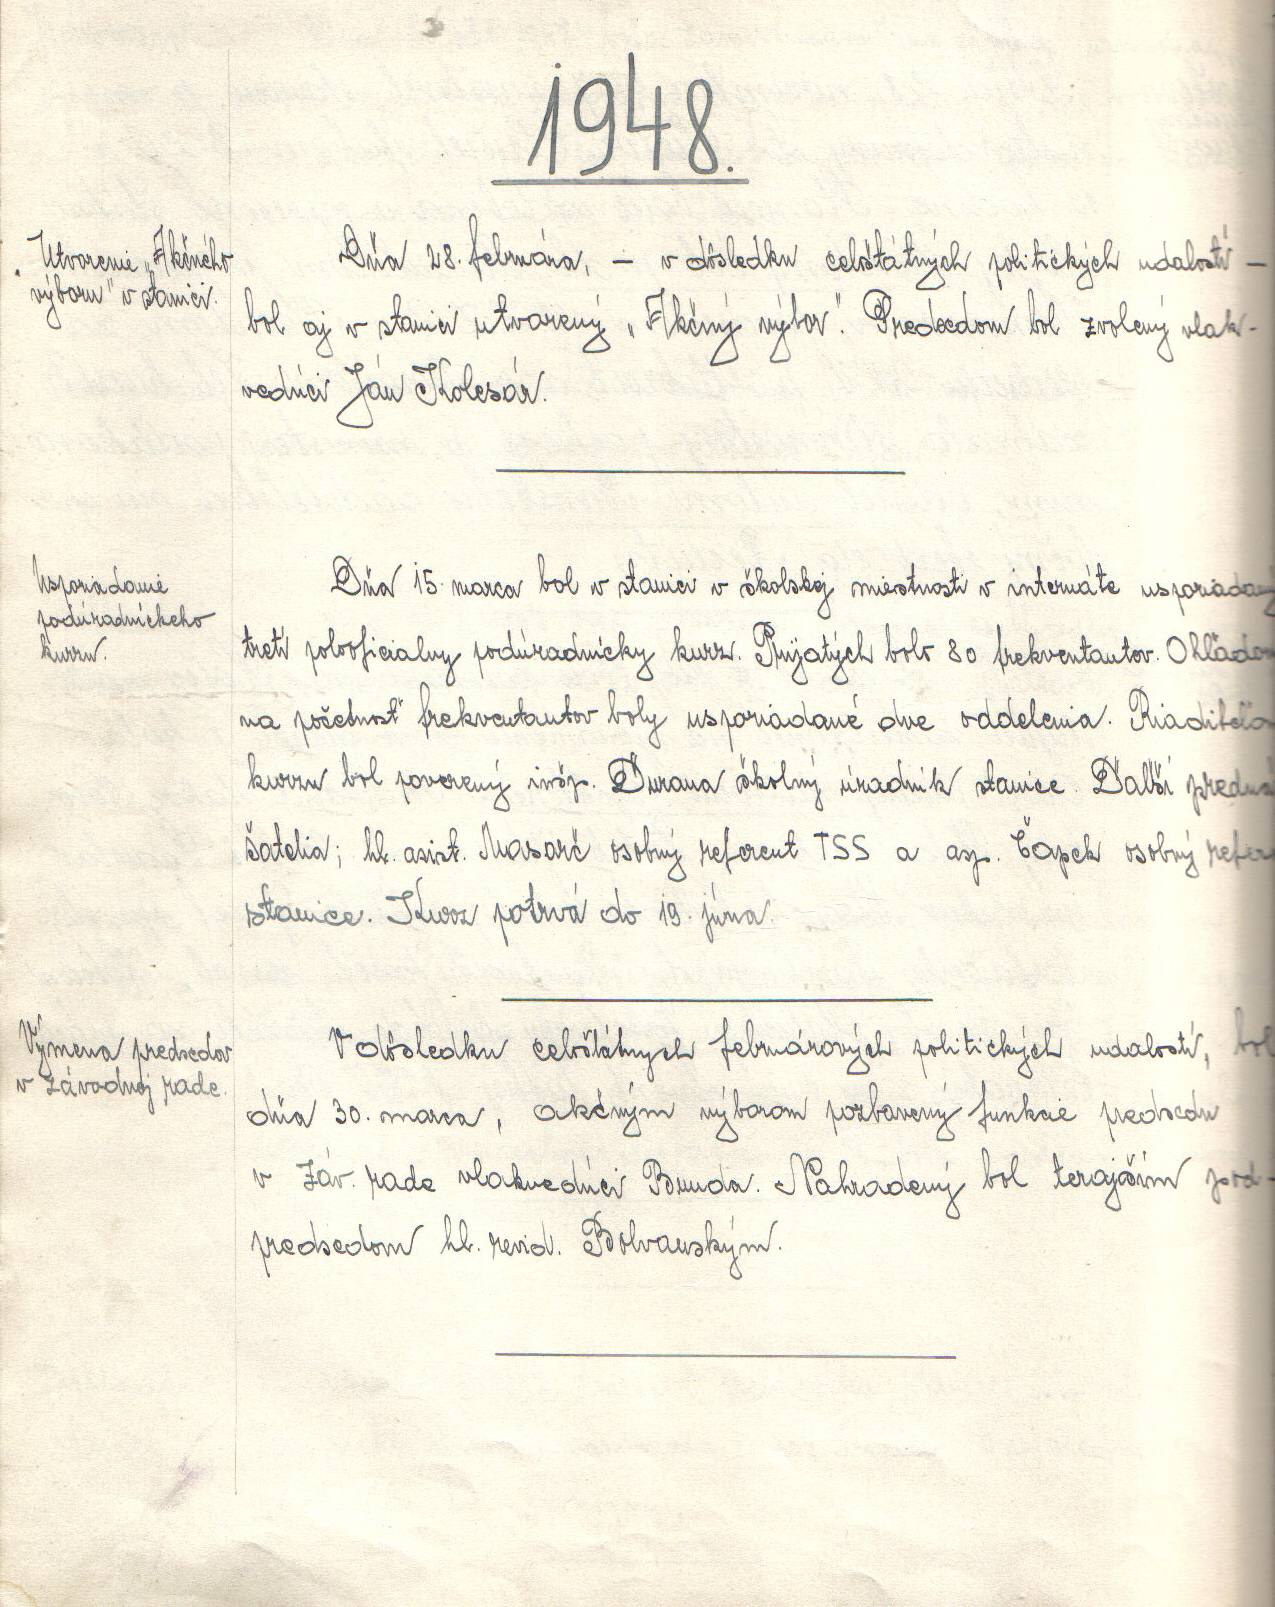 1948.
Utvorenie „Akčného
výboru" v stanici.
Dňa 28. februára, – v dôsledku celoštátných politických udalostí –
bol aj v stanici utvorený „Akčný výbor". Predsedom bol zvolený vlak-
vedúci Ján Kolesár.
Usporiadanie
podúradníckeho
kurzu.
Dňa 15. marca bol v stanici v školskej miestnosti v internáte usporiadaný
tretí polooficialny podúradnícky kurz. Prijatých bolo 80 frekventantov. Ohľadom
na početnosť frekventantov boly usporiadané dve oddelenia. Riaditeľom
kurzu bol poverený inšp. Ďurana školný úradník stanice. Ďalší predná
šatelia; hl. asist. Masarč osobný referent TSS a asp. Čapek osobný refer
stanice. Kurz potrvá do 19. júna.
Výmena predsedov
v závodnej rade.
V dôsledku celoštátnych februárových politických udalostí, bol
dňa 30. marca, akčným výborom pozbavený funkcie predsedu
v Záv. rade vlakvedúci Bunda. Nahradený bol terajším pod-
predsedom hl. revid. Bolvanským.